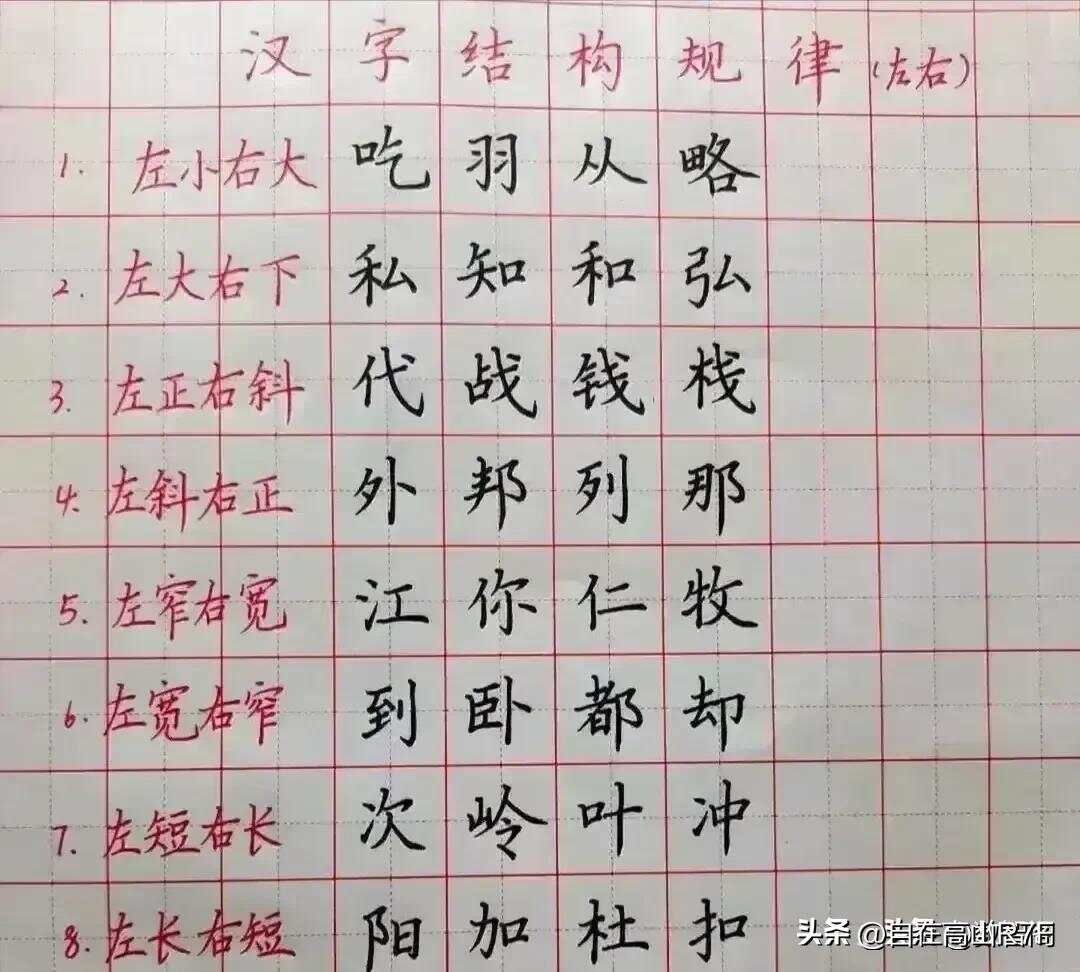 汉字结构规律(左右)
1. 左小右大 吃 羽 从 略
2. 左大右下 私 知 和 弘
3. 左正右斜 代 战 钱 栈
4. 左斜右正 外 邦 列 那
5. 左窄右宽 江 你 仁 牧
6. 左宽右窄 到 卧 都 却
7. 左短右长 次 岭 叶 冲
8. 左长右短 阳 加 杜 扣
头条